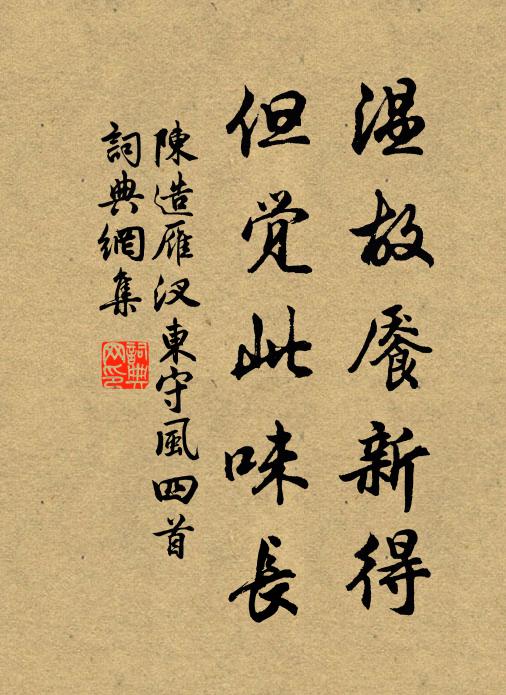 温故餍新得
但觉此味長
陳造雁汊東守風四首
詞典網集
詞典网印